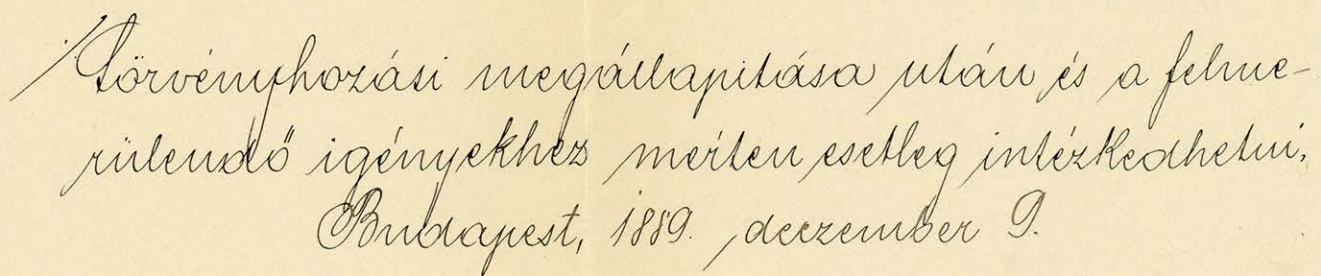 törvényhozási megállapitása után és a felme-
rülendő igényekhez mérten esetleg intézkedhetni,
Budapest, 1889. deczember 9.